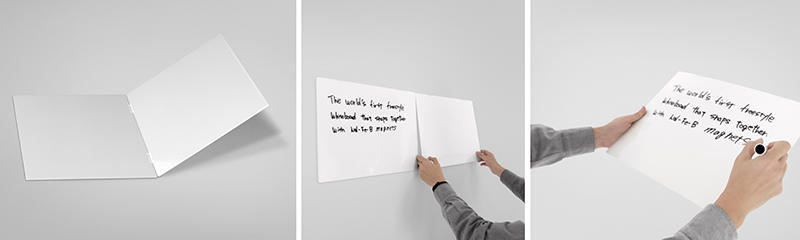 The world's first freestyle
Whiteboard that snaps together
with Nd-Fe-B magnets
The world's first freestyle
Whiteboard that snaps together
with Nd-Fe-B magnets